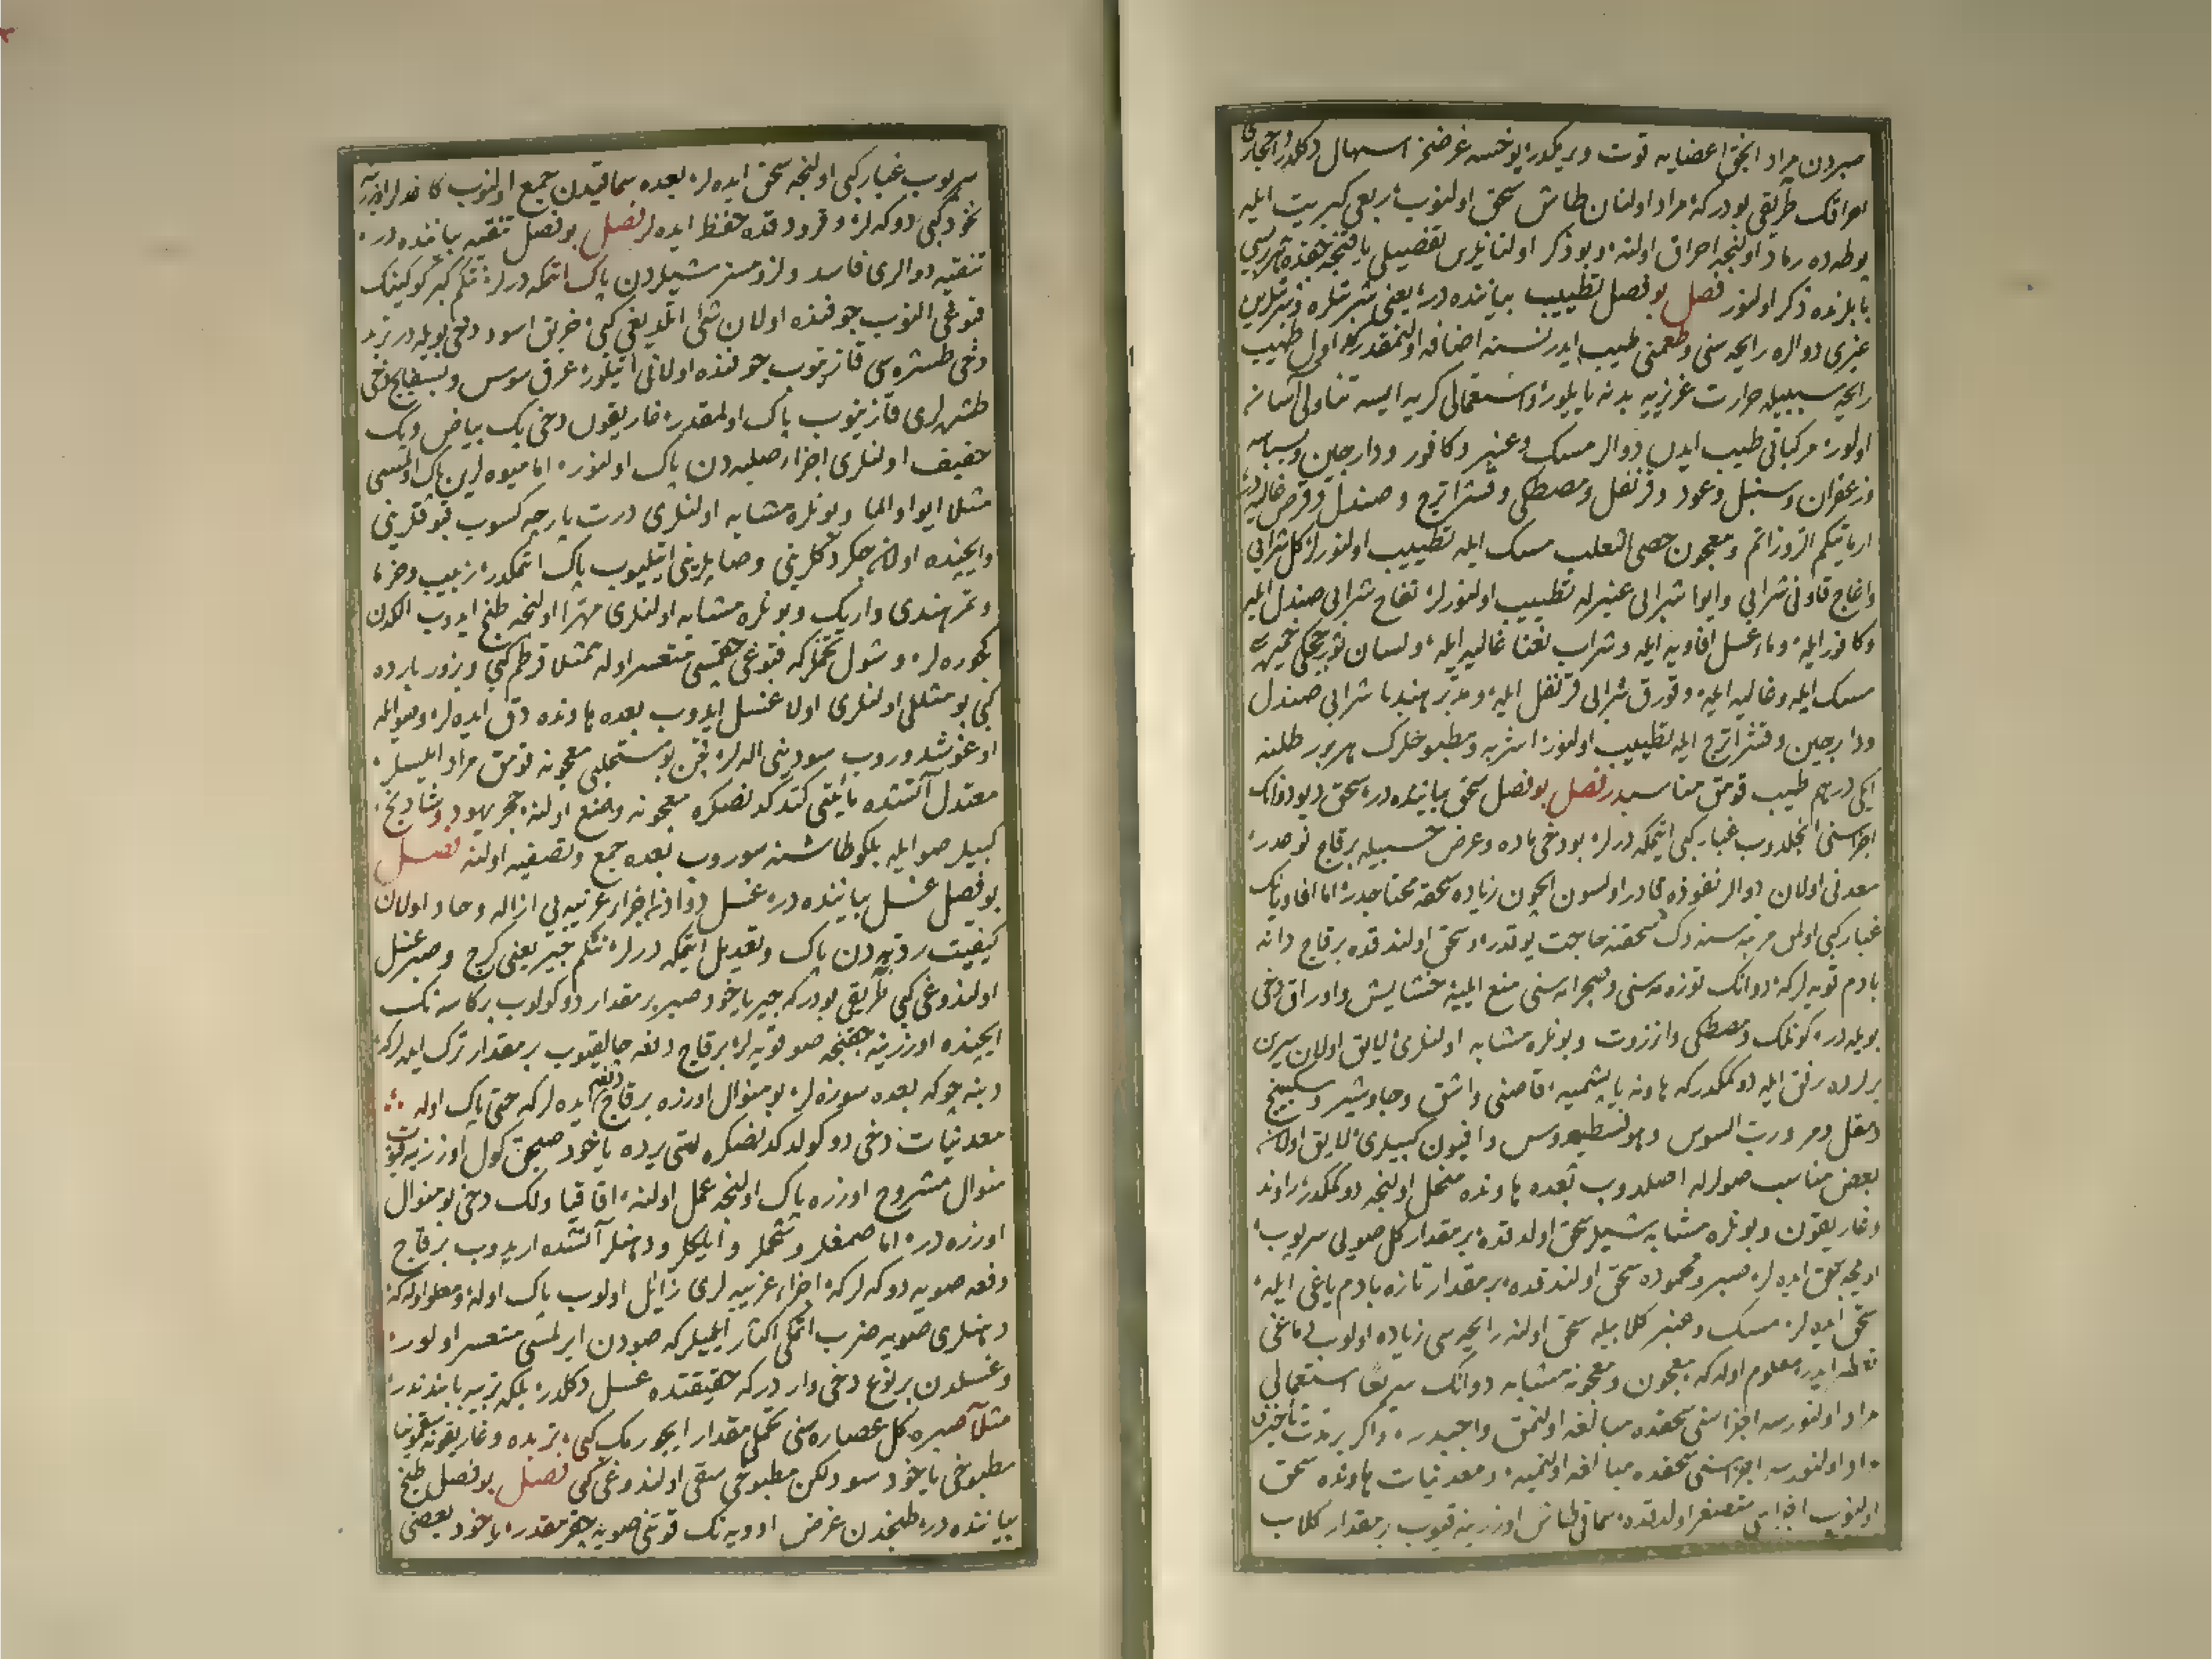 صبردن مراد انجق اعضایه قوت ویرمکدر یوخسه غرضمز اسهال دکلدر و احجارک
احراقنک طریقی بودرکه مراد اولنان طاش سحق اولنوب ربعی کبریت ایله
بوطه ده رماد اولنجه احراق اولنه و بو ذکر اولنانلرک تفصیلی
بابلرنده ذکر اولنور فصل بو فصل تطییب بیاننده در یعنی شربتلره
عنبری دوالره رایحه سنی و طعمنی طیب ایدر نسنه اضافه اولنمقدر اول طییب
رایحه سببیله حرارت غریزیه بدنه یاییلور و استعمالی کریه ایسه تناولی آسان
اولور مرکباتی طیب ایدن دوالر مسک و عنبر و کافور و دارچین و بسباسه
و زعفران و سنبل و عود و قرنفل و مصطکی و قشر اترج و صندل و قرص غالیه در
و معجون خصی الثعلب مسک ایله تطییب اولنور کل شرابی
و اغاج قاونی شرابی و ایوا شرابی عنبرله تطییب اولنورلر تفاح شرابی صندل ایله
و کافور ایله و ماء عسل افاویه ایله و شراب نعنا غالیه ایله و لسان ثور
مسک ایله و غالیه ایله و ورق شرابی قرنفل ایله و هندبا شرابی صندل
و دارچین و قشر اترج ایله تطییب اولنور اشربه و مطبوخلرک هر بر رطلنه
ایکی درهم طییب قومق مناسبدر فصل بو فصل سحق بیاننده در سحق دیو دوانک
اجزاسنی انجلدوب غبار کبی ایتمکه درلر بو دخی ماده و غرض حسبیله بر قاج نوعدر
معدنی اولان دوالر نفوذه قادر اولسون ایچون زیاده سحقه محتاجدر اما افاویه نک
غبار کبی اولمق مرتبه سنه دک سحقنه حاجت یوقدر و سحق اولندقده بر قاج دانه
بادم قویه لرکه دوانک توزمه سنی منع ایلیه خشایش و اوراق دخی
بویله در کونلک و مصطکی و انزروت و بونلره مشابه اولنلری لایق اولان سرین
یرلرده رفق ایله دوکمکدرکه هاونه یاپشمیه قاصنی و اشق و جاوشیر و سکبینج
و مقل و مر و رب السوس و هیوفسطیداس و افیون کبیلری لایق اولان
بعض مناسب صولرله اصلدوب بعده هاونده منحل اولنجه دوکمکدر راوند
و غاریقون و بونلره مشابه شیلر سحق اولندقده بر مقدار کل صویی سرپوب
اویجه سحق ایده لر صبر و محموده سحق اولندقده بر مقدار تازه بادم یاغی ایله
سحق ایده لر مسک و عنبر کلابیله سحق اولنه رایحه سی زیاده اولوب دماغی
ایدر معلوم اوله که معجون و معجونه مشابه دوانک سریعا استعمالی
مراد اولنورسه اجزاسنی سحقده مبالغه اولنمق واجبدر و اکر بر مدت تاخیری
مراد اولنورسه اجزاسنی سحقده مبالغه اولنمیه و معدنیات هاونده سحق
اولنوب اجزاسی متصغر اولدقده سماقی طاش اوزرینه قیوب بر مقدار کلاب
سرپوب غبار کبی اولنجه سحق ایده لر بعده سماقیدن جمع اولنوب کاغدلر اوزرینه
نخود کبی دوکه لر و قوریدقده حفظ ایده لر فصل بو فصل تنقیه بیاننده در
تنقیه دوالری فاسد و لزومسز شیلردن پاک ایتمکه درلر نتکم کبر کوکینک
قبوغی النوب جوفنده اولان شی اتلدیغی کبی خربق اسود دخی بویله در تربد
دخی طشره سی قازینوب جوفنده اولانی اتیلور عرق سوس و بسفایج دخی
طشه لری قازینوب پاک اولمقدر غاریقون دخی پک بیاض و پک
خفیف اولنلری اجزاء صلبه دن پاک اولنور اما میوه لرین پاک اولمسی
مثلا ایوا و الما و بونلره مشابه اولنلری درت پارچه کسوب قبوقلرینی
و ایچنده اولان چکردکلرینی و صاپلرینی ایتیلیوب پاک اتمکدر زبیب و خرما
و تمر هندی و اریک و بونلره مشابه اولنلری مهرا اولنجه طبخ ایدوب الکدن
کچوره لر و شول تخملرکه قبوغی چقمسی متعسر اوله مثلا قرطم کبی و بزور بارده
کبی بو مثللی اولنلری اولا غسل ایدوب بعده هاونده دق ایده لر و صو ایله
اوغوشدوروب سودینی اله لر چن بو مستحلبی معجونه قومق مراد ایلسلر
معتدل آتشده قایتدکدنصکره معجونه وضع اولنه حجر یهود و شادنج
کبیلر صو ایله بلکو طاشنه سوروب بعده جمع و تصفیه اولنه فصل
بو فصل غسل بیاننده در غسل دوادن اجزاء غریبه یی ازاله و حاد اولان
کیفیت ردیه دن پاک و تعدیل ایتمکه درلر نتکم جیر یعنی کرج و صبر غسل
اولندوغی کبی طریقی بودرکه جیر یاخود صبر بر مقدار دوکولوب بر کاسه نک
ایچنده اوزرینه چقنجه صو قویه لر بر قاج دفعه چالقیوب بر مقدار ترک ایله لرکه
دبنه چوکه بعده سوزه لر بو منوال اوزره بر قاج دفعه ایده لر که حتی پاک اوله
معدنیات دخی دوکولدکدنصکره لتی یرده یاخود صیجق کول اوزرینه قیوب
منوال مشروح اوزره پاک اولنجه عمل اولنه اقاقیا و لک دخی بو منوال
اوزره در اما صمغلر و شحملر و ایلیکلر و دهنلر آتشده اریدوب بر قاج
دفعه صویه دوکه لرکه اجزاء غریبه لری زائل اولوب پاک اوله و معلوم اوله که
دهنلری صویه ضرب اتمکی اکثار ایلمیه لرکه صودن ایرلمسی متعسر اولور
و غسلدن بر نوع دخی واردرکه حقیقتده غسل دکلدر بلکه تربیه بابندندر
مثلا صبره کل عصاره سنی تحملی مقدار ایچورمک کبی و تربده و غاریقونه سقمونیا
مطبوخی یاخود سودلکن مطبوخی سقی اولندوغی کبی فصل بو فصل طبخ
بیاننده در طبخدن غرض ادویه نک قوتی صویه چقمقدر یاخود بعضی